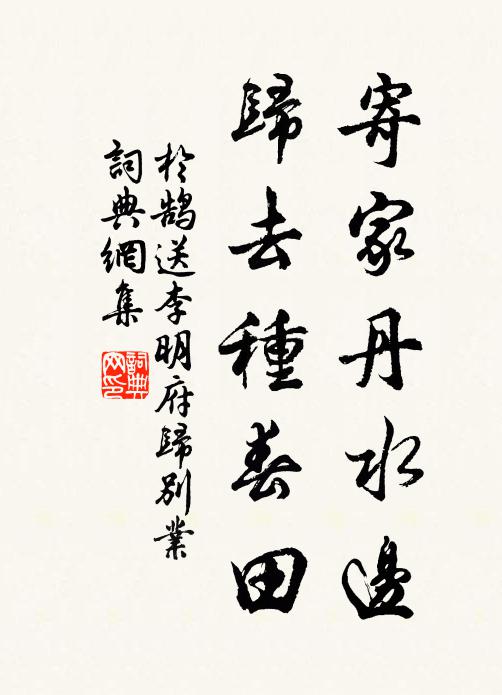 寄家丹水邊
歸去種春田
於鵠送李明府歸別業
詞典網集
詞典網印